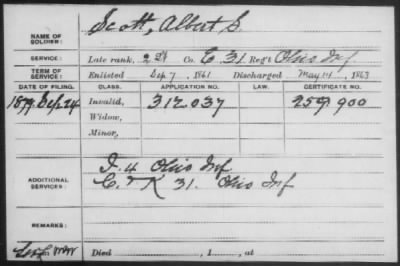 NAME OF SOLDIER: Scott, Albert S.
SERVICE: Late rank, 2 Lt Co. C 31 Reg't Ohio Inf
TERM OF SERVICE: Enlisted Sep. 7, 1861 Discharged May 14, 1863
DATE OF FILING. CLASS. APPLICATION NO. LAW. CERTIFICATE NO.
1879 Sep. 24 Invalid, 312.037 259.900
Widow,
Minor,
ADDITIONAL SERVICES: I. 4 Ohio Inf
C. & K 31. Ohio Inf
REMARKS:
Died , 1 , at